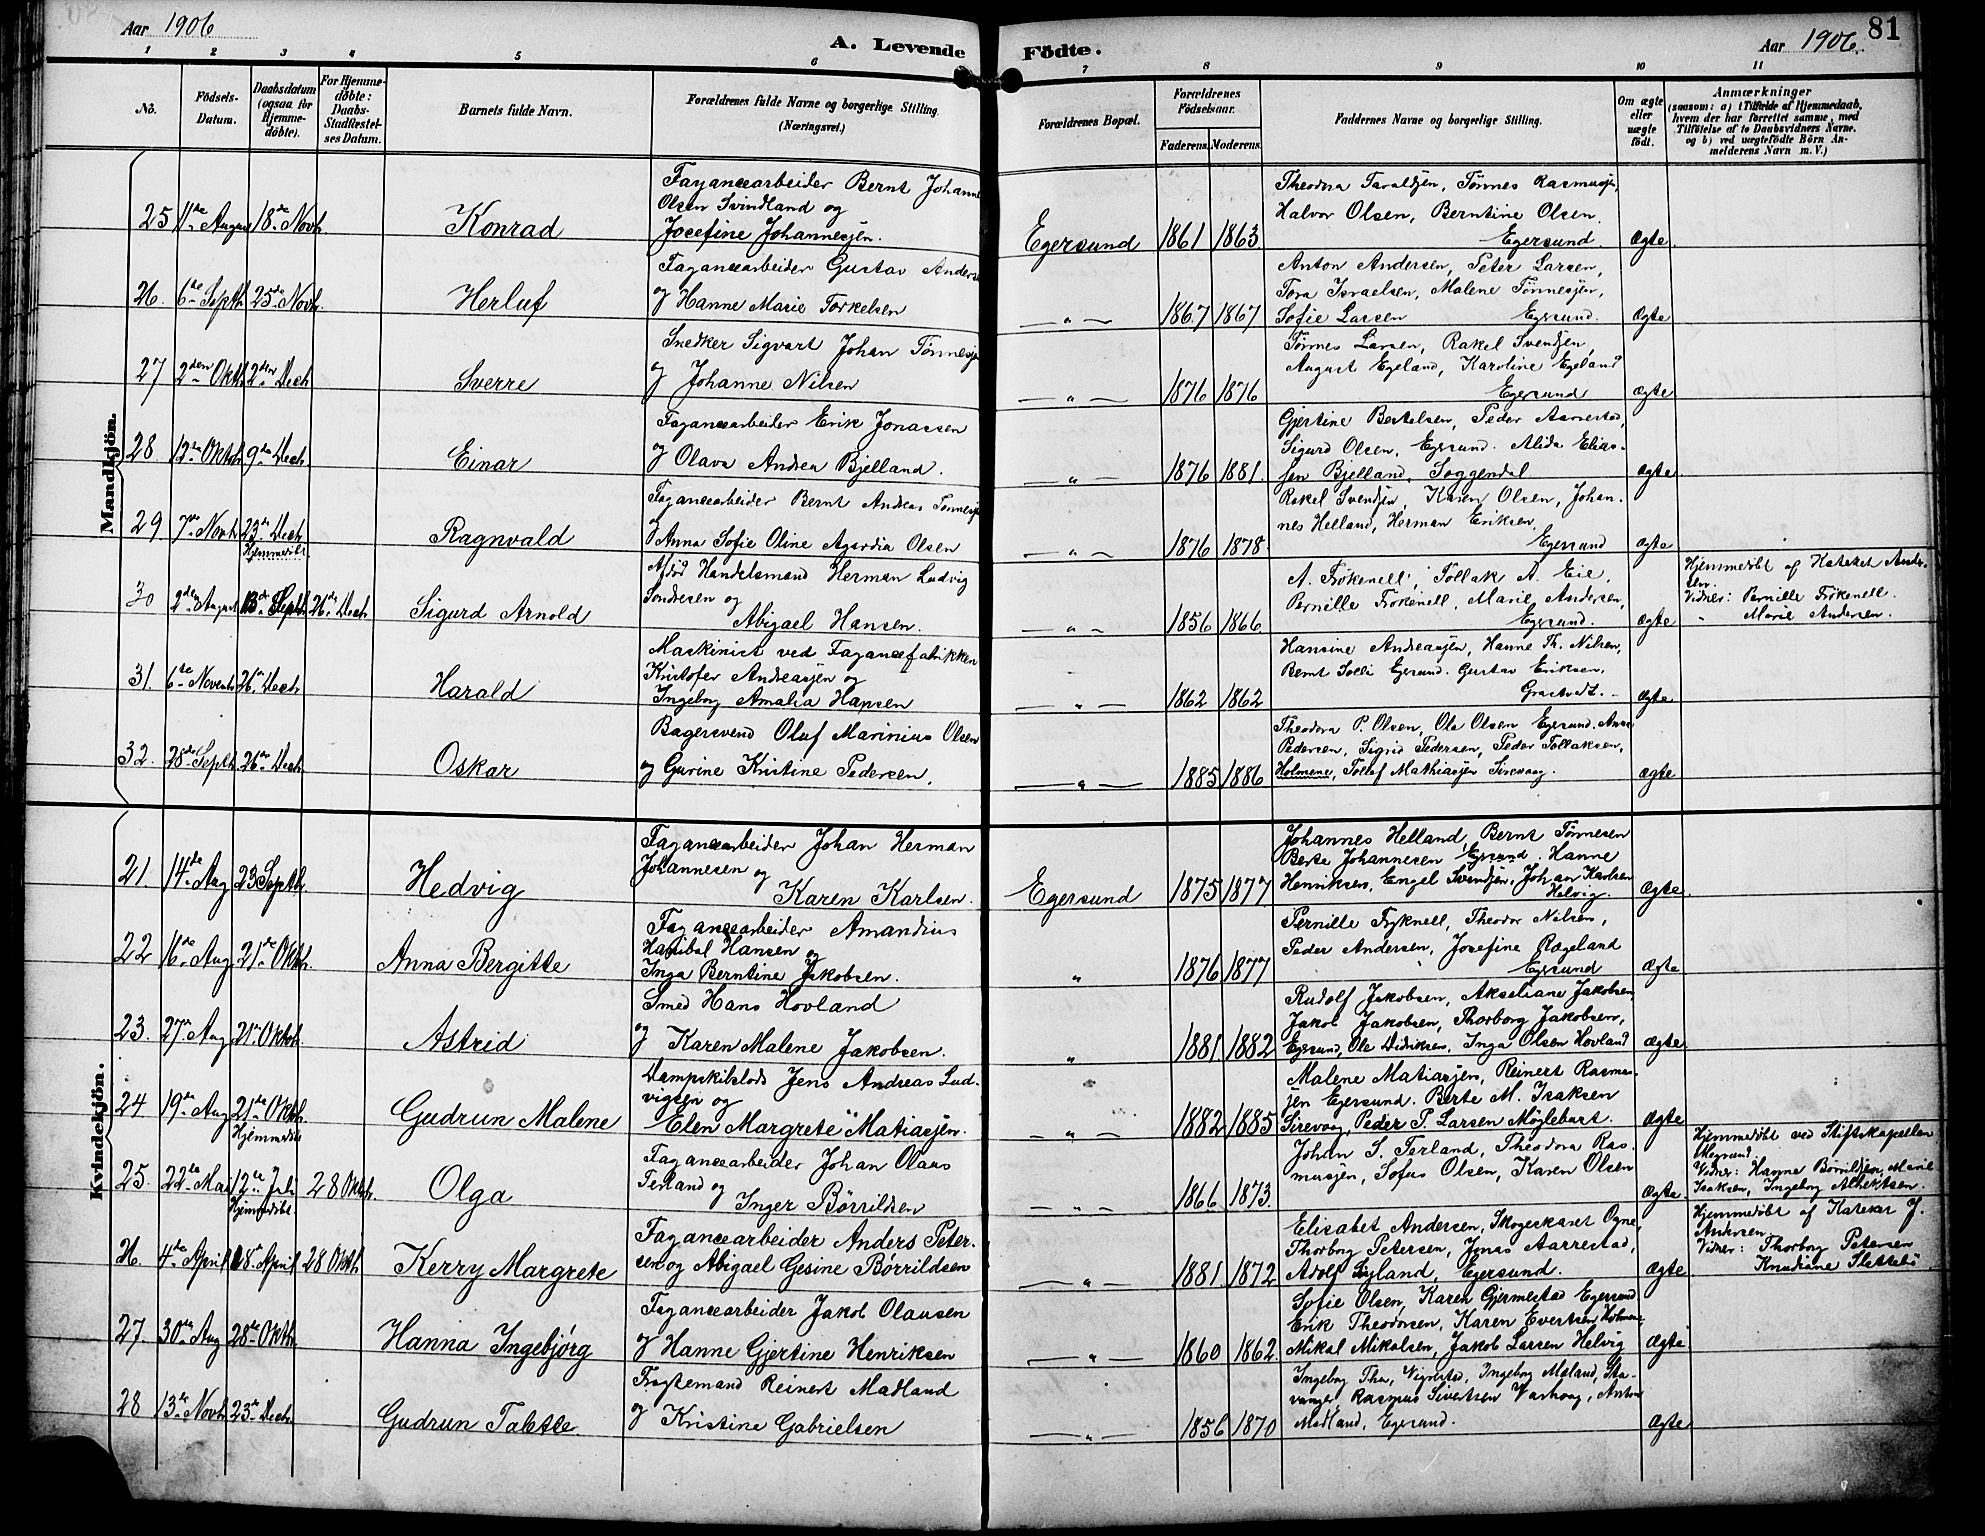 Aar 1906
A. Levende Födte.
Aar 1906.
81
1 2 3 4 5 6 7 8 9 10 11
No.
Födsels-Datum.
Daabsdatum (ogsaa for Hjemme-döbte).
For Hjemme-döbte: Daabs-Stadfæstel-ses Datum.
Barnets fulde Navn.
Forældrenes fulde Navne og borgerlige Stilling. (Næringsvei.)
Forældrenes Bopæl.
Forældrenes Födselsaar.
Faderens. Moderens.
Faddernes Navne og borgerlige Stilling.
Om ægte eller uægte födt.
Anmærkninger
(saasom: a) i Tilfælde af Hjemmedaab,
hvem der har forrettet samme, med
Tilföielse af to Daabsvidners Navne.
og b) ved uægtefödte Börn An-
melderens Navn m. V.)
Mandkjön.
25 11te August 18de Novb. Konrad
Fayancearbeider Bernt Johannes
Olsen Svindland og
Josefine Johannesjen.
Egersund 1861 1863
Theodora Taraldsen, Tønnes Rasmusjen,
Halvor Olsen, Berntine Olsen.
Egersund. Ægte
26. 6te Septb. 25de Novb. Herluf
Fayancearbeider Gustav Andersen
og Hanne Marie Torkelsen
— " — 1867 1867
Anton Andersen, Peter Larsen,
Tora Israelsen, Malene Tønnesjen,
Sofie Larsen Egersund. Ægte
27 2den Oktb. 2den Decb. Sverre
Snedker Sigvart Johan Tønnesjen
og Johanne Nilsen
— " — 1876 1876
Tønnes Larsen, Rakel Svendsen,
August Egeland, Karoline Egeland
Egersund Ægte
28 12te Oktob. 9de Decb. Einar
Fayancearbeider Erik Jonassen
og Olava Andrea Bjelland.
— " — 1876 1881.
Gjertine Bertelsen, Peder Aarrestad,
Sigurd Olsen, Egersund. Alida Elias-
sen Bjelland, Soggendal Ægte
29 7de Novb. 23de Decb. Ragnvald
Fayancearbeider Bernt Andreas Tønnesjen
og Anna Sofie Oline Agardia Olsen
— " — 1876 1878.
Rakel Svendsen, Karen Olsen, Johan-
nes Helland, Herman Eriksen,
Egersund Ægte
30 2den August Hjemmedøbt 13de Septb. 26de Decb. Sigurd Arnold
Afdød Handelsmand Herman Ludvig
Sondresen og
Abigael Hansen.
— " — 1856 1866
A. Frøkenell, Tollak A. Eie,
Pernille Frøkenell, Marie Andersen,
Egersund. Ægte
Hjemmedøbt af Kateket Ander-
sen.
Vidner: Pernille Frøkenell.
" Marie Andersen.
31. 6te Novemb. 26de Decb. Harald
Maskinist ved Fayancefabrikken
Kristofer Andreasjen og
Ingeborg Amalia Hansen
— " — 1862 1862
Hansine Andreasjen, Hanne Th. Nilsen,
Bernt Solli Egersund. Gustav Eriksen,
Ægte
32. 28de Septb. 26de Decb. Oskar
Bagersvend Oluf Marinius Olsen
og Gurine Kristine Pedersen.
— " — 1885 1886
Theodora P. Olsen, Ole Olsen Egersund. Anne
Pedersen, Sigrid Pedersen, Peder Tollaksen,
Holmene, Tollef Mathiasjen Sirevaag. Ægte
Kvindekjön.
21. 14de Aug. 23 Septb. Hedvig
Fayancearbeider Johan Herman
Johannesen og
Karen Karlsen.
Egersund 1875 1877
Johannes Helland, Bernt Tønnesen
Berte Johannesen Egersund. Hanne
Henriksen, Engel Svendsen, Johan Karlsen
Helvig. Ægte.
22 16de Aug. 21de Oktb. Anna Bergitte
Fayancearbeider Amandius
Hanibal Hansen og
Inga Berntine Jakobsen.
" 1876 1877
Pernille Fryknell, Theodor Nilsen,
Peder Andersen, Josefine Rægeland
Egersund Ægte
23. 27de Aug 21de Oktob. Astrid
Smed Hans Hovland
og Karen Malene Jakobsen.
" 1881. 1882
Rudolf Jakobsen, Akseliane Jakobsen,
Jakob Jakobsen, Thorborg Jakobsen,
Egersund, Ole Didriksen, Inga Olsen Hovland Ægte.
24 19de Aug 21de Oktb. Gudrun Malene
Dampskibslods Jens Andreas Lud-
vigsen og
Elen Margrete Matiasjen.
— " — 1882 1885
Malene Matiasjen, Reinert Rasmu-
sjen Egersund. Berte M. Isaksen
Sirevaag, Peder P. Larsen Møglebust. Ægte
25. 22de Mai Hjemmedøbt 12te Juli 28 Oktb. Olga
Fayancearbeider Johan Olaus
Terland og
Inger Børrildsen
— " — 1866 1873.
Johan S. Terland, Theodora Ras-
musjen, Sofus Olsen, Karen Olsen
Ægte.
Hjemmedøbt ved Stiftskapellan
Vidner: Hanne Børrildsen, Marie
Isaksen, Ingeborg Albertsen.
26. 4de April Hjemmedøbt. 18de April 28 Oktb. Kerry Margrete
Fayancearbeider Anders Peter-
sen og Abigael Gesine Børrildsen
— " — 1881 1872
Elisabet Andersen, Skogeskaret Ogne,
Thorborg Petersen, Jonas Aarrestad,
Adolf Eyland, Egersund. Ægte
Hjemmedøbt af Kateket J.
Andersen
Vidner: Thorborg Petersen
Knudiane Slettebø
27. 30te Aug 28de Oktb. Hanna Ingebjørg
Fayancearbeider Jakob Olausen
og Hanne Gjertine Henriksen
— " — 1860 1862.
Sofie Olsen, Karen Gjermestad Egersund
Erik Theodorsen, Karen Evertsen Holmene,
Mikal Mikalsen, Jakob Larsen Helvig Ægte
28 13de Novb. 23de Decb. Gudrun Talette
Fragtemand Reinert Madland
og Kristine Gabrielsen
— " — 1856 1870
Ingeborg Ths. Vigrestad, Ingeborg Meland, Sta-
vanger, Rasmus Sivertsen Varhaug, Anton
Madland, Egersund. Ægte